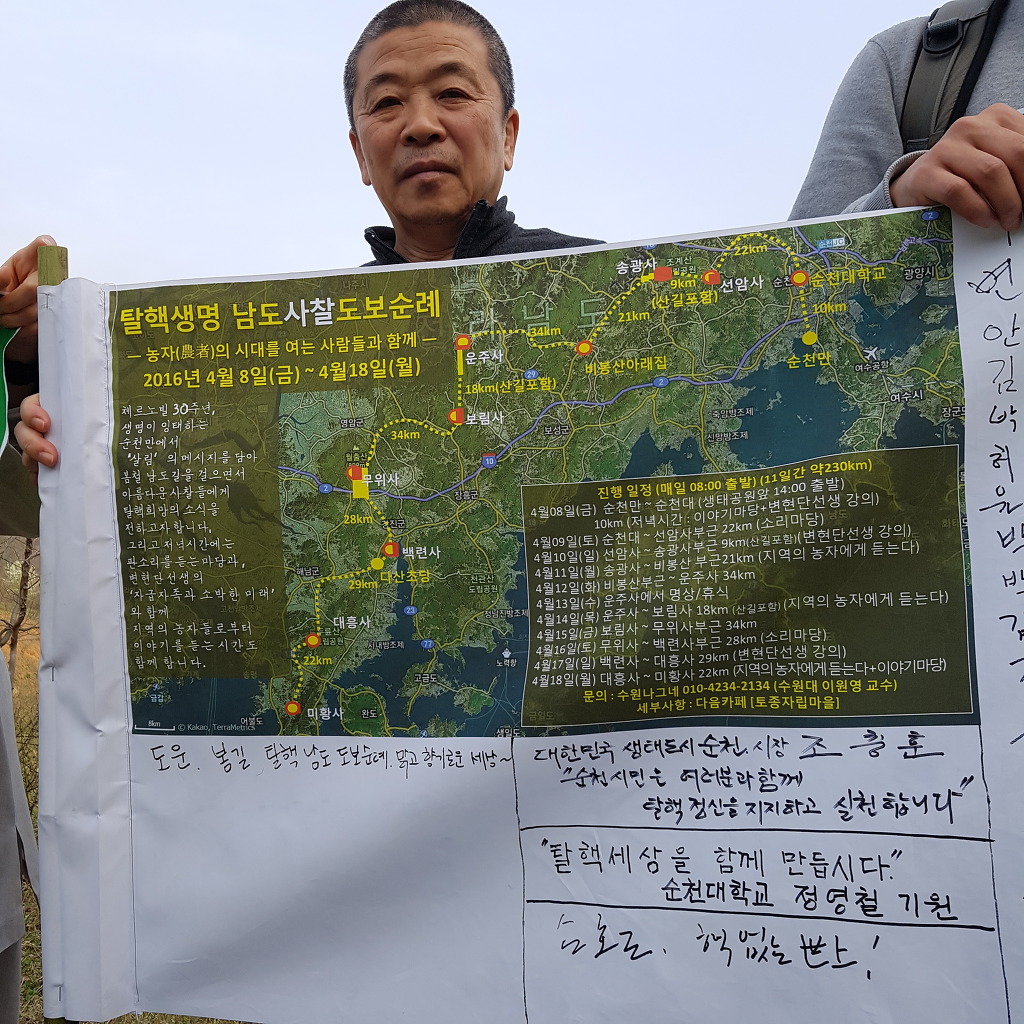 탈핵생명 남도사찰도보순례
— 농자(農者)의 시대를 여는 사람들과 함께 —
2016년 4월 8일(금) ~ 4월18일(월)
체르노빌 30주년,
생명이 잉태하는
순천만에서
'살림'의 메시지를 담아
봄철 남도길을 걸으면서
아름다운사찰들에게
탈핵희망의 소식을
전하고자합니다.
그리고 저녁시간에는
판소리를 듣는마당과,
변현단선생의
'자급자족과 소박한 미래'
와 함께
지역의 농자들로부터
이야기를 듣는 시간도
함께 합니다.
송광사
조계산
9km
(산길포함)
선암사
22km
순천JC
순천대학교
광양시
10km
순천만
여수공항
여수시
21km
34km
비봉산아래집
운주사
18km(산길포함)
보림사
보성군
축암방조제
신망방조제
영암군
34km
월출산
무위사
장흥군
28km
강진군
백련사
다산초당
해남군
29km
천관산
도립공원
대흥사
22km
사내방조제
고금도
노력항
미황사
완도
어불도
금갑
생일도
8km
© Kakao, TerraMetrics
진행 일정 (매일 08:00 출발) (11일간 약230km)
4월08일(금) 순천만 ~ 순천대 (생태공원앞 14:00 출발)
10km (저녁시간 : 이야기마당+변현단선생 강의)
4월09일(토) 순천대 ~ 선암사부근 22km (소리마당)
4월10일(일) 선암사 ~ 송광사부근 9km(산길포함)(변현단선생 강의)
4월11일(월) 송광사 ~ 비봉산 부근21km (지역의 농자에게 듣는다)
4월12일(화) 비봉산부근 ~ 운주사 34km
4월13일(수) 운주사에서 명상/휴식
4월14일(목) 운주사 ~ 보림사 18km (산길포함) (지역의 농자에게 듣는다)
4월15일(금) 보림사 ~ 무위사부근 34km
4월16일(토) 무위사 ~ 백련사부근 28km (소리마당)
4월17일(일) 백련사 ~ 대흥사 29km (변현단선생 강의)
4월18일(월) 대흥사 ~ 미황사 22km (지역의농자에게듣는다+이야기마당)
문의 : 수원나그네 010-4234-2134 (수원대 이원영 교수)
세부사항 : 다음카페 [토종자립마을]
도운. 봉길 탈핵 남도 도보순례. 맑고 향기로운 세상~
대한민국 생태도시 순천. 시장 조충훈
"순천시민은 여러분과 함께
탈핵 정신을 지지하고 실천합니다"
"탈핵세상을 함께 만듭시다."
순천대학교 정영철 기원
핵 없는 世上!